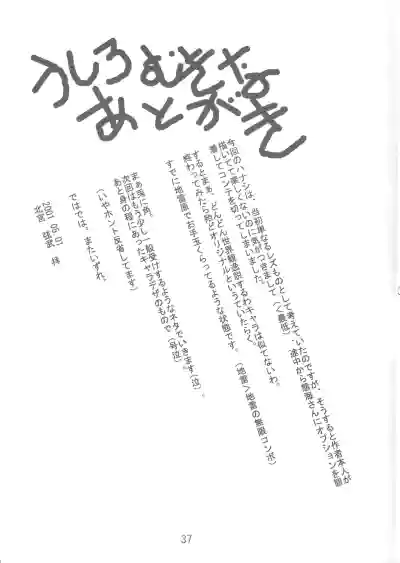 うしろむきな
あとがき
今回のハナシは、当初単なるレズものとして考えていたのですが、そうすると作者本人が
描いてて楽しくないのに気がつきまして（＜最低）途中から悠海さんにオプションを
激しくてコンテを切ってしまいました。
するとまぁ、どんどん世界観急脱するわキャラは似てないわ。
終わってみたら殆どオリジナルというていたらく。
すでに地雷原でお手玉くらってるような状態です。（地雷＞地雷の無限コンボ）
まぁ兎に角。
次回はもう少し一般受けするようなネタでいきます（泣）。
あと身の程にあったキャラデザのもので（号泣）
（いやホント反省してます）
ではでは。またいずれ。
2001 05 01
37